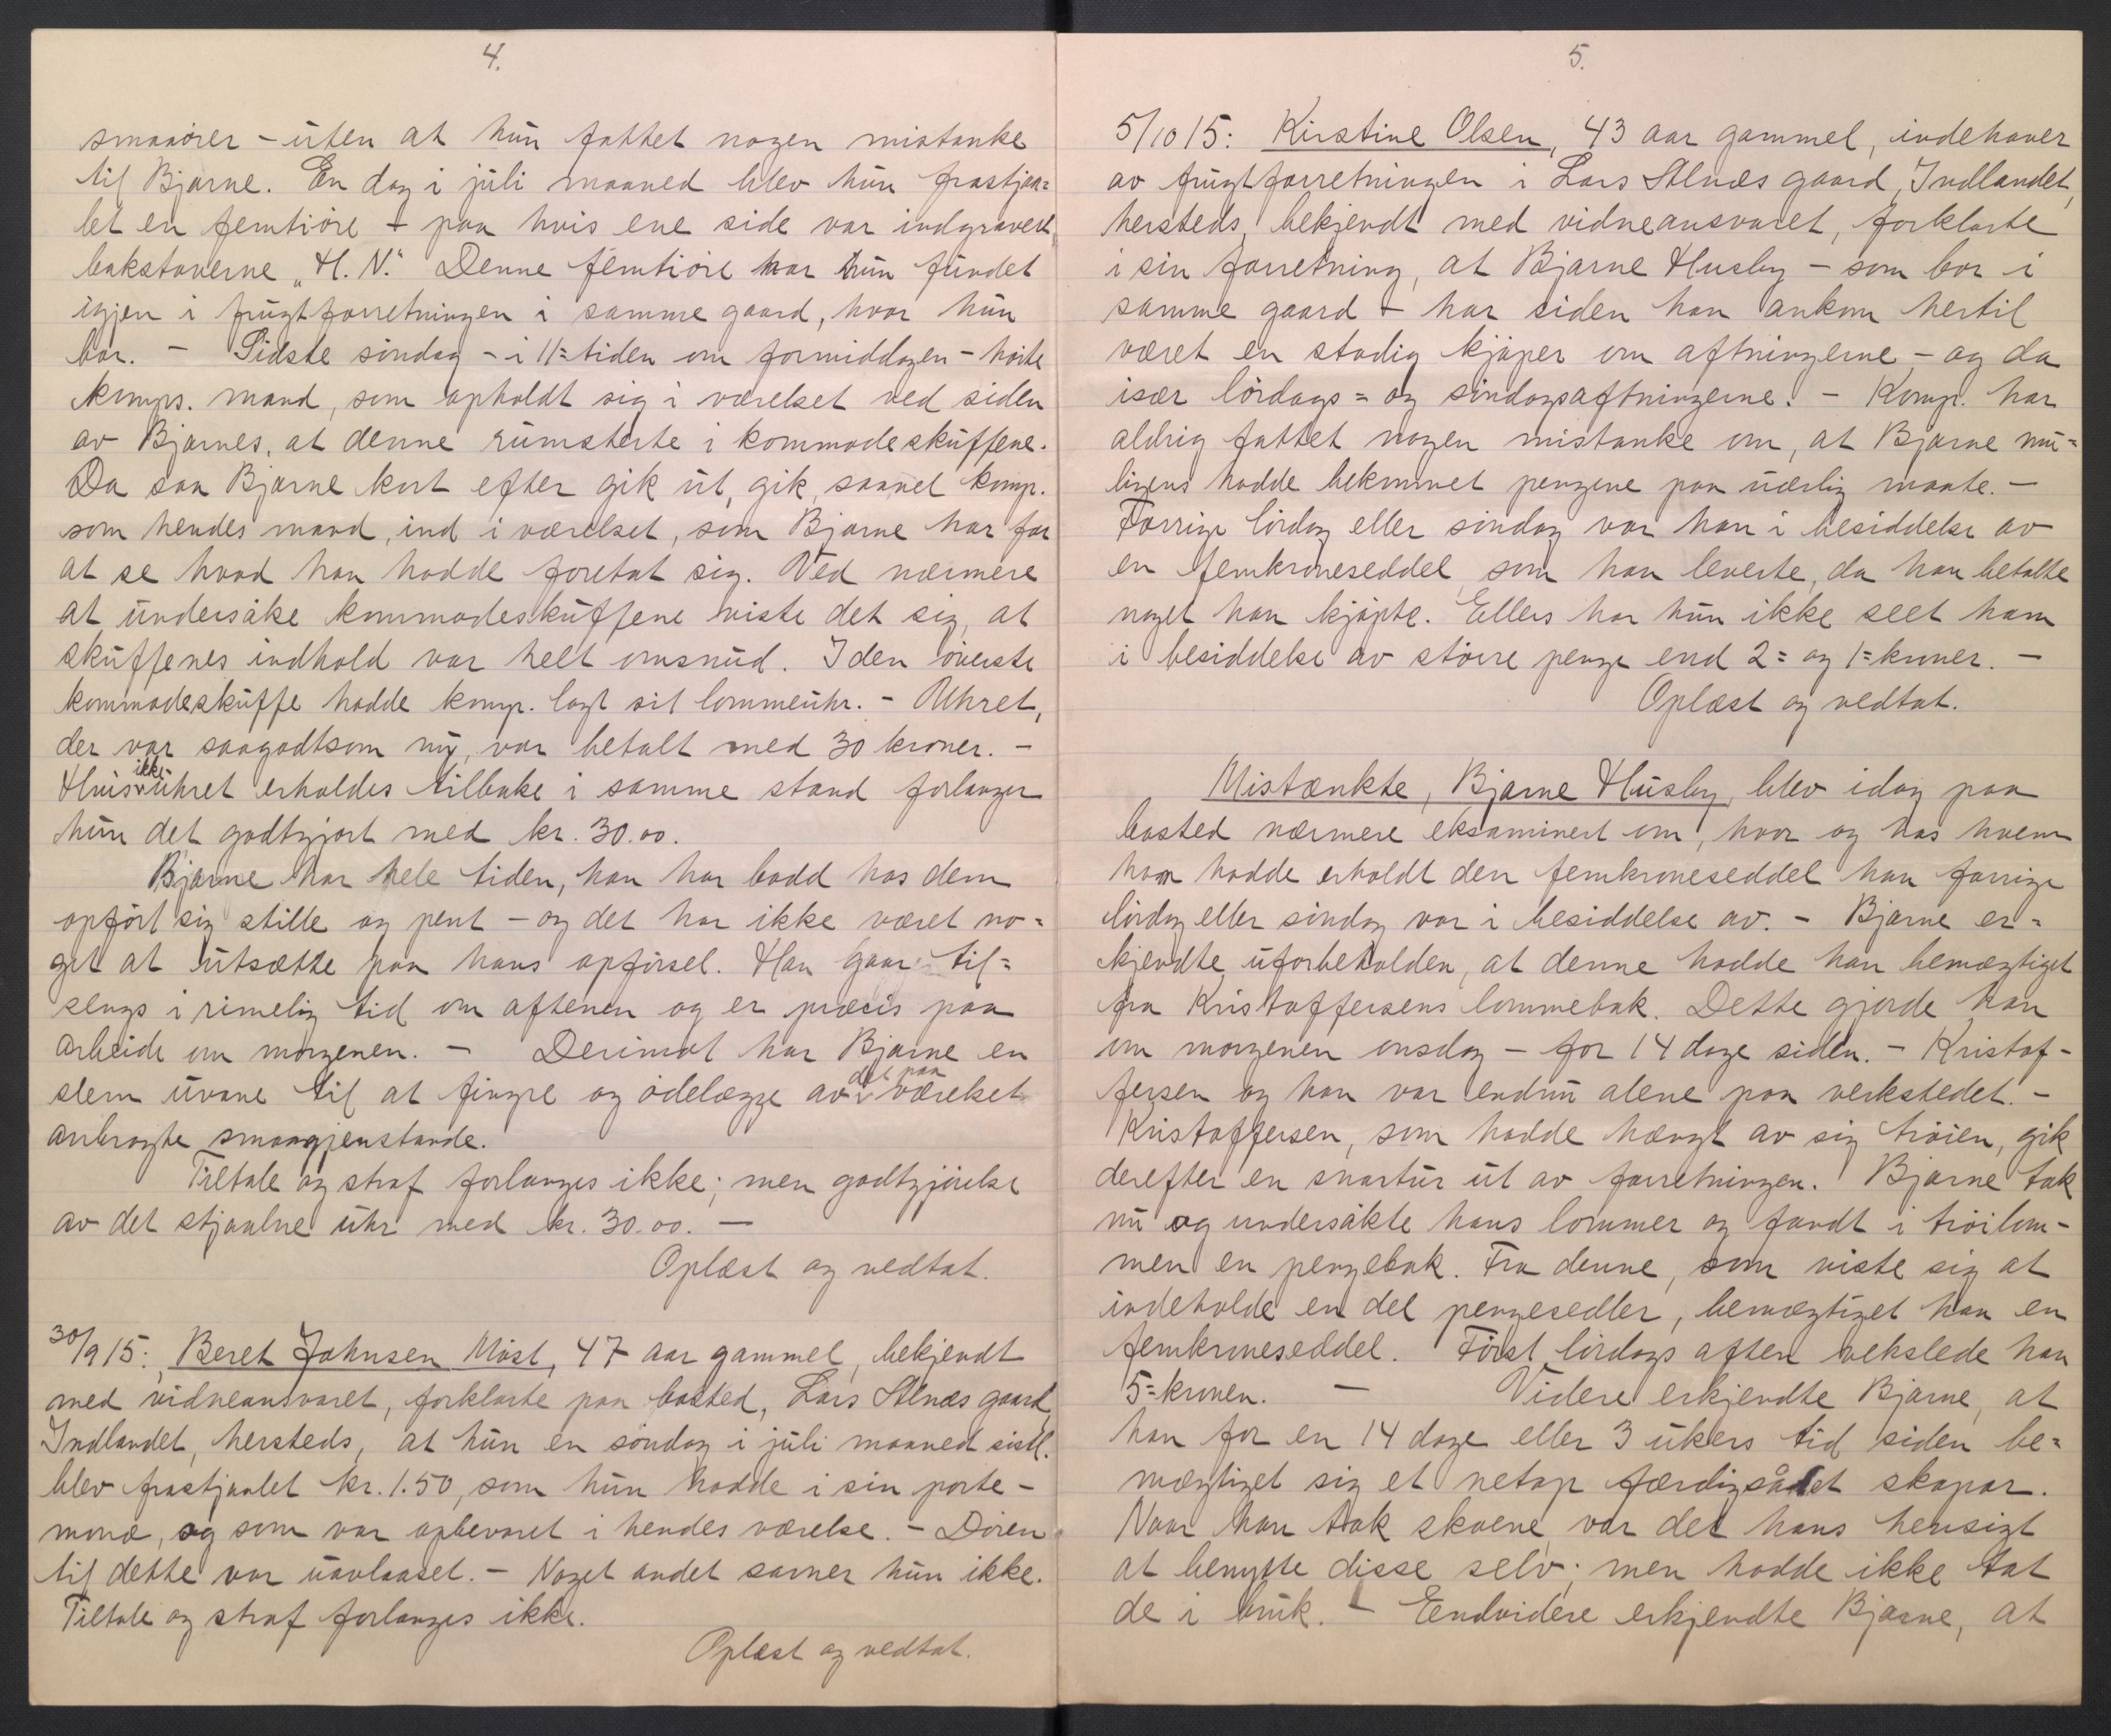 4.
smaaører - uten at hun fattet nogen mistanke
til Bjarne. En dag i juli maaned blev hun frastjaa=
let en femtiøre + paa hvis ene side var indgravert
bokstaverne „H. N.“ Denne femtiøre har hun fundet
igjen i frugtforretningen i samme gaard, hvor hun
bor. - Sidste søndag - i 11=tiden om formiddagen - hørte
komps. mand, som opholdt sig i værelset ved siden
av Bjarnes, at denne rumsterte i kommodeskuffene.
Da saa Bjarne kort efter gik ut, gik, saavel komp.
som hendes mand, ind i værelset, som Bjarne har for
at se hvad han hadde foretat sig. Ved nærmere
at undersøke kommodeskuffene viste det sig, at
skuffenes indhold var helt omsnud. I den øverste
kommodeskuffe hadde komp. lagt sit lommeuhr. - Uhret,
der var saagodtsom ny, var betalt med 30 kroner. -
Hvis ikke uhret erholdes tilbake i samme stand forlanger
hun det godtgjort med kr. 30.00.
Bjarne har hele tiden, han har bodd hos dem
opført sig stille og pent - og det har ikke været no=
get at utsætte paa hans opførsel. Han gaar til=
sengs i rimelig tid om aftenen og er præcis paa
arbeide om morgenen. - Derimot har Bjarne en
slem uvane til at fingre og ødelægge av det paa værelset
anbragte smaagjenstande.
Tiltale og straf forlanges ikke; men godtgjørelse
av det stjaalne uhr med kr. 30.00. -
Oplæst og vedtat.
30/9 15: Beret Johnsen Møst, 47 aar gammel, bekjendt
med vidneansvaret, forklarte paa bosted, Lars Alnæs gaard,
Indlandet, hersteds, at hun en søndag i juli maaned sistl.
blev frastjaalet kr. 1.50, som hun hadde i sin porte-
monæ, og som var opbevaret i hendes værelse. - Døren
til dette var uavlaaset. - Noget andet savner hun ikke.
Tiltale og straf forlanges ikke.
Oplæst og vedtat.
5.
5/10 15: Kirstine Olsen, 43 aar gammel, indehaver
av frugtforretningen i Lars Alnæs gaard, Indlandet,
hersteds, bekjendt med vidneansvaret, forklarte
i sin forretning, at Bjarne Husby - som bor i
samme gaard + har siden han ankom hertil
været en stadig kjøper om aftningerne - og da
især lørdags= og søndagsaftningerne. - Komp. har
aldrig fattet nogen mistanke om, at Bjarne mu=
ligens hadde bekommet pengene paa uærlig maate. -
Forrige lørdag eller søndag var han i besiddelse av
en femkroneseddel, som han leverte, da han betalte
noget han kjøpte. Ellers har hun ikke seet ham
i besiddelse av større penge end 2= og 1=kroner. -
Oplæst og vedtat.
Mistænkte, Bjarne Husby, blev idag paa
bosted nærmere eksaminert om, hvor og hos hvem
han hadde erholdt den femkroneseddel han forrige
lørdag eller søndag var i besiddelse av. - Bjarne er=
kjendte uforbeholden, at denne hadde han bemægtiget
fra Kristoffersens lommebok. Dette gjorde han
om morgenen onsdag - for 14 dage siden. - Kristof-
fersen og han var endnu alene paa verkstedet. -
Kristoffersen, som hadde hængt av sig trøien, gik
derefter en snartur ut av forretningen. Bjarne tok
nu og undersøkte hans lommer og fandt i trøilom-
men en pengebok. Fra denne, som viste sig at
indeholde en del pengesedler, bemægtiget han en
femkroneseddel. Først lørdags aften vekslede han
5=kronen. - Videre erkjendte Bjarne, at
han for en 14 dage eller 3 ukers tid siden be=
mægtiget sig et netop færdigsålet skopar.
Naar han tok skoene, var det hans hensigt
at benytte disse selv; men hadde ikke tat
de i bruk. - Eendvidere erkjendte Bjarne, at